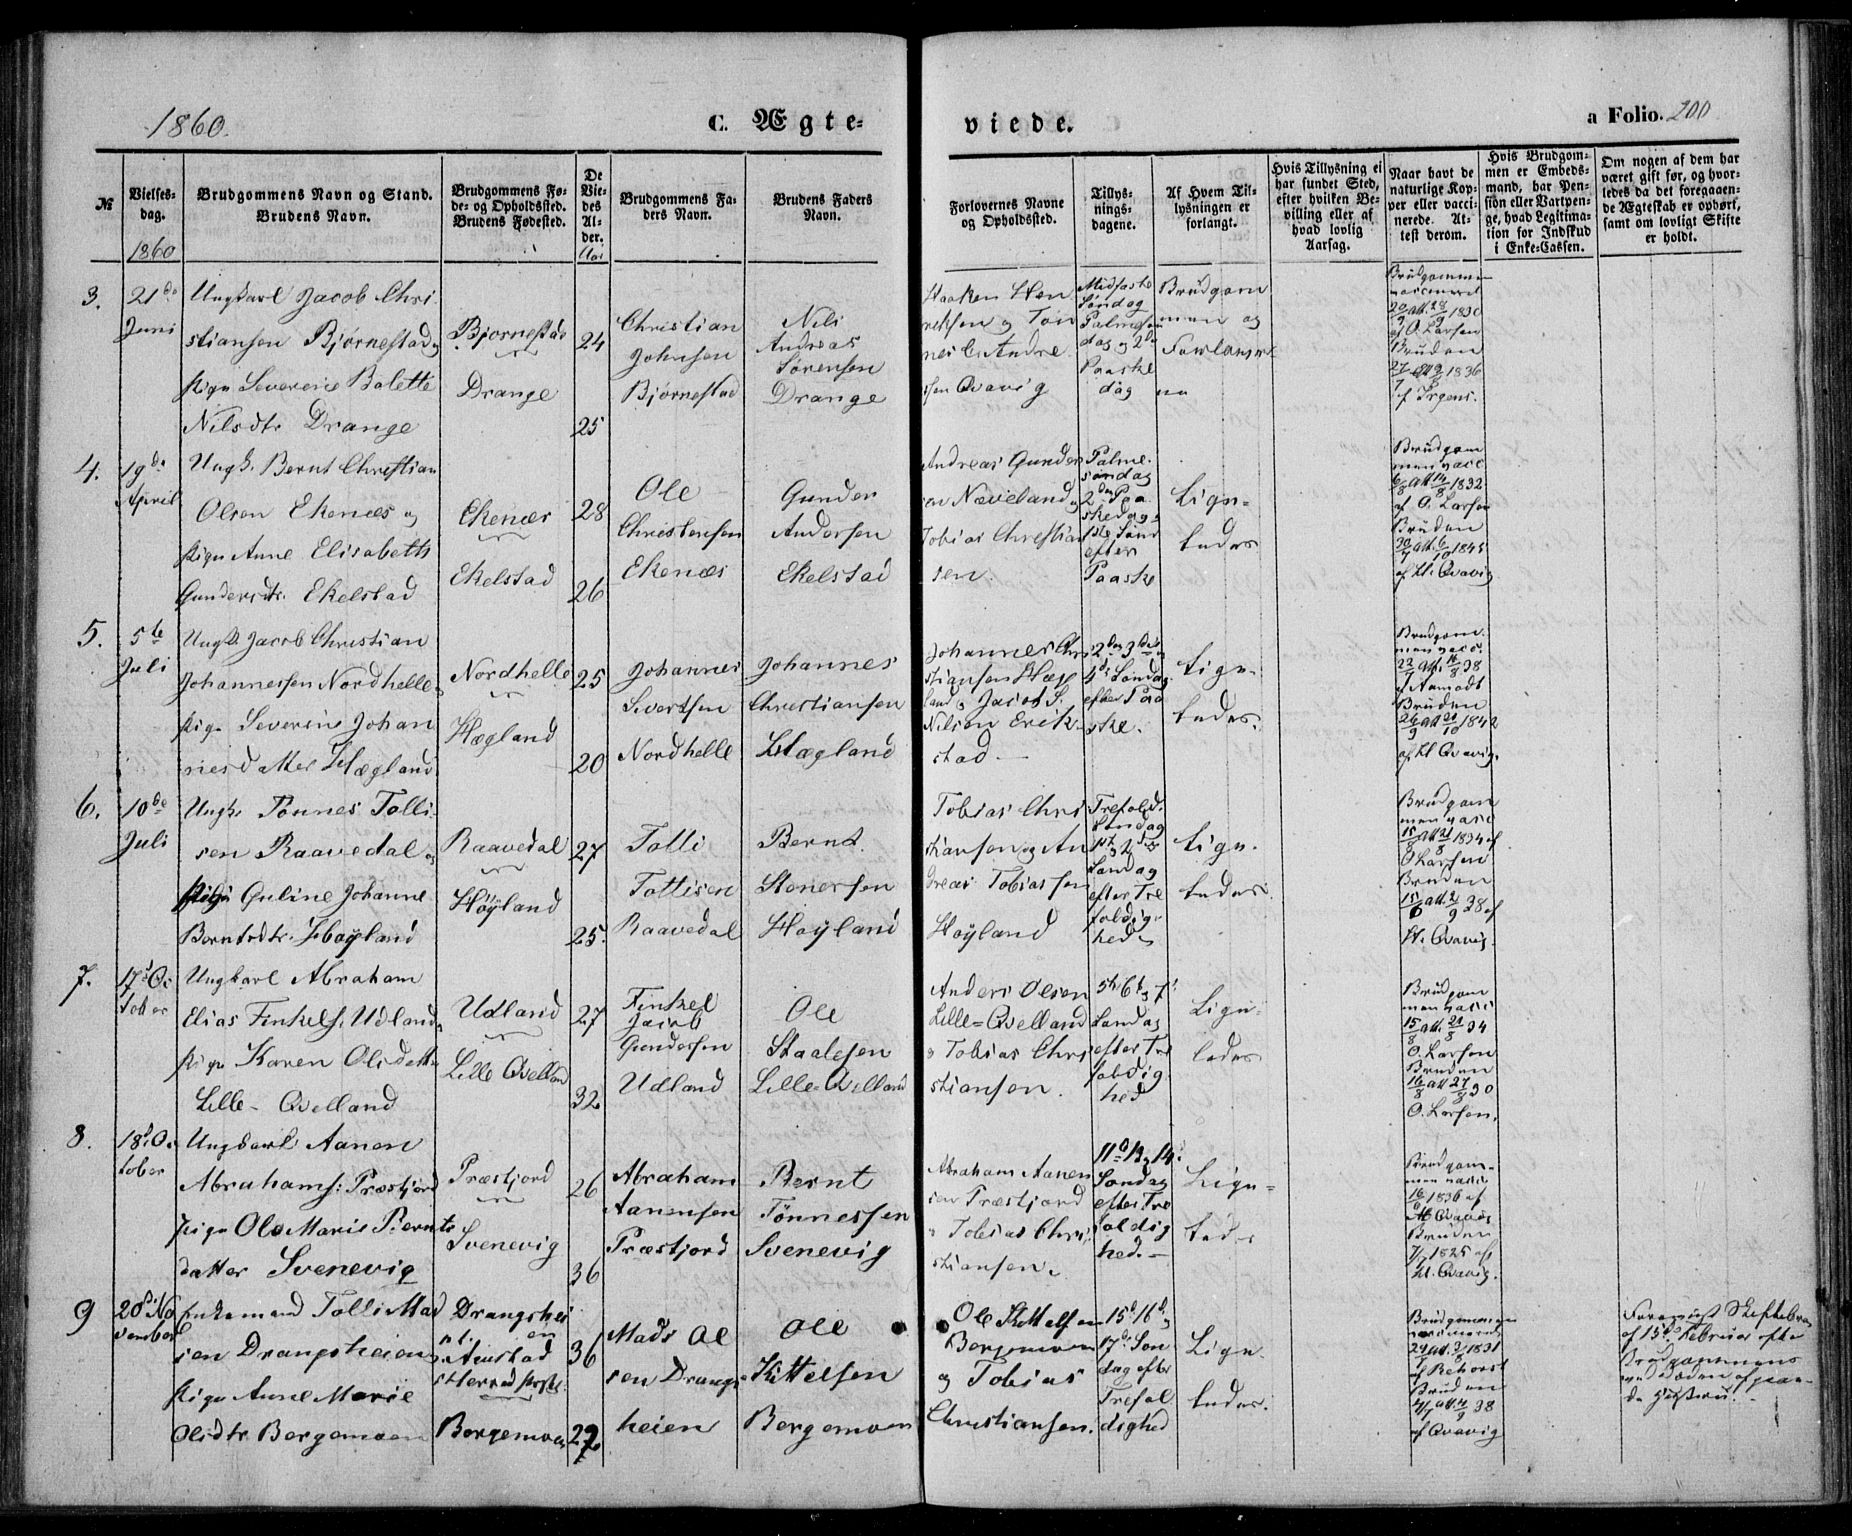 1860.
C. Ægte-
viede.
a Folio. 200
№
Vielses-
dag.
1860
Brudgommens Navn og Stand.
Brudens Navn.
Brudgommens Fø-
de- og Opholdssted.
Brudens Fødested.
De
Vie-
des
Al-
der.
Aar
Brudgommens Fa-
ders Navn.
Brudens Faders
Navn.
Forlovernes Navne
og Opholdssted.
Tillys-
nings-
dagene.
Af Hvem Til-
lysningen er
forlangt.
Hvis Tillysning ei
har fundet Sted,
efter hvilken Be-
villing eller af
hvad lovlig
Aarsag.
Naar havt de
naturlige Kop-
per eller vacci-
nerede. At-
test derom.
Hvis Brudgom-
men er Embeds-
mand, har Pen-
sion eller Vartpen-
ge, hvad Legitima-
tion for Indskud
i Enke-Cassen.
Om nogen af dem har
været gift før, og hvor-
ledes da det foregaaen-
de Ægteskab er ophørt,
samt om lovligt Skifte
er holdt.
3.
21de
Juni
Ungkarl Jacob Chri
stiansen Bjørnestad og
Pige Severine Bolette
Nilsdtr Drange
Bjornestad
Drange
24
25
Christian
Johnsen
Bjørnestad
Nils
Andreas
Sørensen
Drange
Haaken Hen
riksen og Ton
nes C. Andre
sen Qvavig
Midfaste
Søndag
Palmesøn
dag og 2den
Paaske
dag
Brudgom
men og
Forlover
ne
Brudgommen
vaccineret
1830
af O. Larsen
Bruden
1836
af Irgens.
4.
19de
April
Ungk. Bernt Christian
Olsen Ekenæs og
Pige Anne Elisabeth
Gundersdtr. Ekelstad
Ekenæs
Ekelstad
28
26
Ole
Christensen
Ekenæs
Gunder
Andersen
Ekelstad
Andreas Gunder
sen Næveland og
Tobias Christian
sen.
Palme-
søndag
2den Paa
skedag
1ste Sønd
efter
Paaske
Lige-
ledes
Brudgom
men vacc
6/8 att 14/8 1832
af O. Larsen
Bruden
1845
af H. Qvavig
5.
5te
Juli
Ungk Jacob Christian
Johannessen Nordhelle og
Pige Severine Johan
nesdatter Hægland
Nordhelle
Hægland
25
20
Johannes
Sivertsen
Nordhelle
Johannes
Christiansen
Hægland
Johannes Chri
stiansen Hæg
land og Jacob S.
Nilsen Erik-
stad
2den 3die og
4de Søndag
efter Paa
ske.
Lige-
ledes.
Brudgom-
men vacc.
38
af Aamodt
Bruden
26/9 att 20/10 1842
af H Qvavig.
6.
10de
Juli
Ungk. Tønnes Tolli
sen Raavedal og
Pige Guline Johanne
Berntsdtr. Høyland
Raavedal
Høyland
27
25.
Tolli
Tollisen
Raavedal
Bernt
Stenersen
Høyland
Tobias Chri
stiansen og An
dreas Tobiassen
Høyland
Trefold.
Søndag
1ste og 2den
Søndag
efter Tre
foldig-
hed
Lige-
ledes.
Brudgom
men vacc
15/8 att 21/8 1834 af
O Larsen
Bruden
15/6 att 2/9 38 af
H. Qvavig.
7.
17de Oc
tober
Ungkarl Abraham
Elias Finkels. Udland og
Pige Karen Olsdatter
Lille- Qvelland
Udland
Lille Qvelland
27
32
Finkel
Jacob
Gundersen
Udland
Ole
Staalesen
Lille-Qvelland
Anders Olsen
Lille-Qvelland
og Tobias Chri
stiansen.
5te 6te og 7de
Søndag
efter Tre
foldig
hed
Lige-
ledes
Brudgom
men vacc
15/8 att. 21/8 34
O. Larsen
Bruden
16/8 att 27/8 30
O. Larsen.
8.
18de Oc
tober
Ungkarl Aanen
Abrahams: Præstjord
Pige Ole Marie Bernts
datter Svenevig
Præstjord
Svenevig
26
36
Abraham
Aanensen
Præstjord
Bernt
Tønnessen
Svenevig
Abraham Aanen
sen Præstjord
og Tobias Chri
stiansen.
11te 13 og 14de
Søndag
efter Tre
foldig
hed.
Lige-
ledes
Brudgom-
men vacc
1836 af
H Qvavig
Bruden
7/7 1825 af
H. Qvavig.
9
20de No
vember
Enkemand Tolli Mad
sen Drangsheien og
Pige Anne Marie
Olsdtr Bergemoen
Drangshei
en
Aamstad
Herred
Bergemoen
36
22
Mads Ol
sen Drangs
heien
Ole
Kittelsen
Bergemoen
Ole Kittelsen
Bergemoen
og Tobias
Christiansen.
15de 16de og
17de Søn
dag efter
Trefol
dighed
Lige-
ledes.
Brudgommen
vaccineret
1831
Bruden
38
af Qvavig
Forevist Skiftebrev
af 15de Februar efter
Brudgommens
ved Døden afgaae
de Hustru.